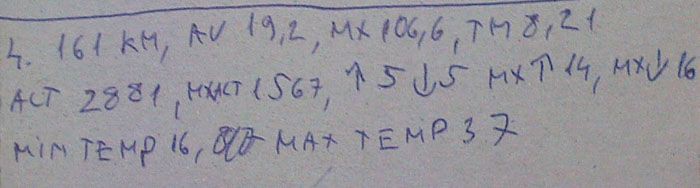 4. 161 KM, AV 19,2, MX 106,6, TM 8,21
ACT 2881, MXACT 1567, ↑ 5 ↓ 5 MX ↑ 14, MX ↓ 16
MIN TEMP 16, MAX TEMP 37